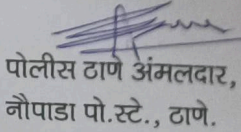 पोलीस ठाणे अंमलदार,
नौपाडा पो.स्टे., ठाणे.